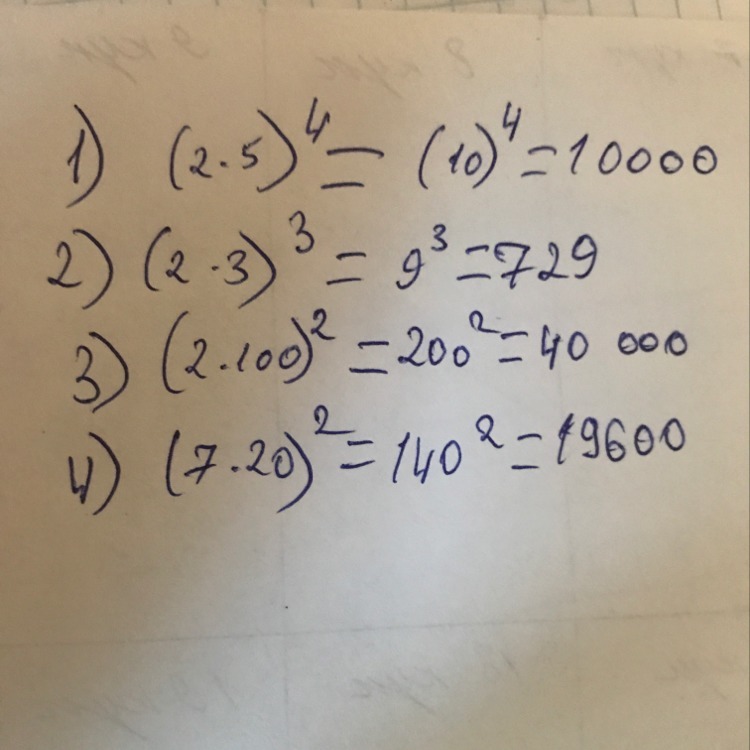 1) (2·5)⁴ = (10)⁴ = 10000
2) (2·3)³ = 9³ = 729
3) (2·100)² = 200² = 40 000
4) (7·20)² = 140² = 19600